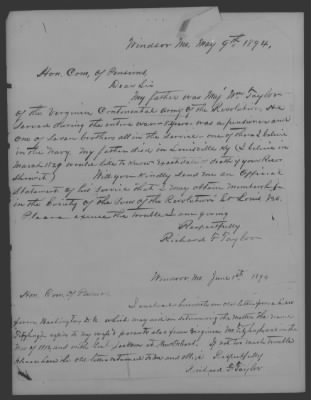 Windsor Mo. May 9th 1894,
Hon. Com. of Pensions,
Dear Sir
My father was Maj Wm Taylor
of the Virginia Continental Army of the Revolution. He
served during the entire war - 7 years was a pensioner and
one of seven brothers all in the service - one of them I believe
in the Navy. My father died in Louisville Ky I believe in
March 1829 would like to know exact date of death if you have
shown it) Will you kindly send me an Official
Statement of his services that I may obtain membership
in the Society of the Sons of the Revolution St Louis Mo.
Please excuse the trouble I am giving
Respectfully
Richard F Taylor
Windsor Mo. June 1st 1894
Hon. Com. of Pensions
I enclose herewith an old letter from
Washington D.C. which may aid in determining the matter. The name
Fitzhugh refers to my wife's parents also from Virginia
War of 1812, and with Genl Jackson at If not too much trouble
please have the old letter returned to me and oblige Respectfully
Richard F Taylor